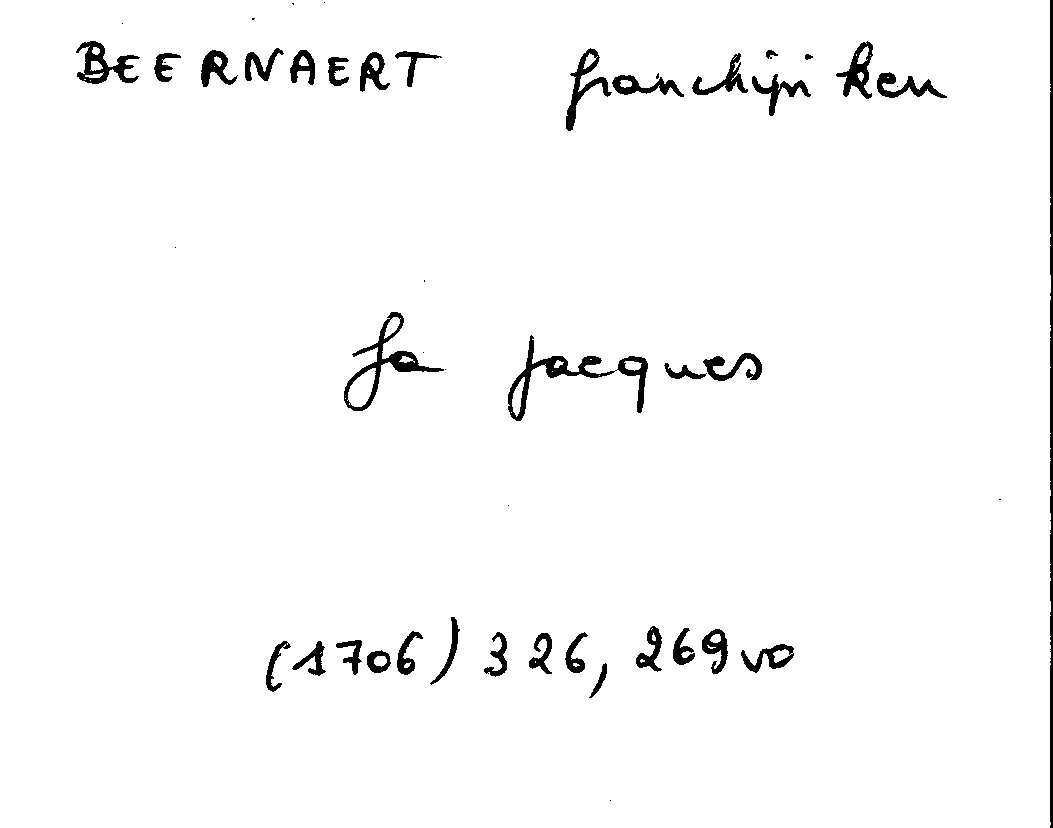 BEERNAERT franchijnken
fa jacques
(1706) 326, 269vo